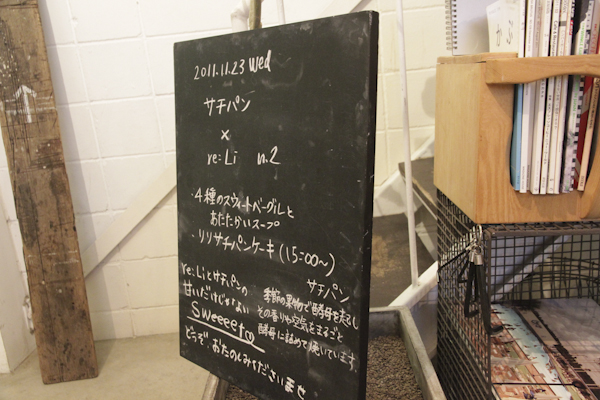 2011.11.23 Wed
サチパン
×
re:Li n.2
・4種のスウィートベーグルと
あたたかいスープ
・リリサチパンケーキ(15:00〜)
re:Liとサチパンの
甘いだけじゃない
Sweeeet♡
どうぞ、おたのしみくださいませ
サチパン
季節の果物で酵母を起こし
その香りや空気をまるごと
酵母に詰めて焼いています。